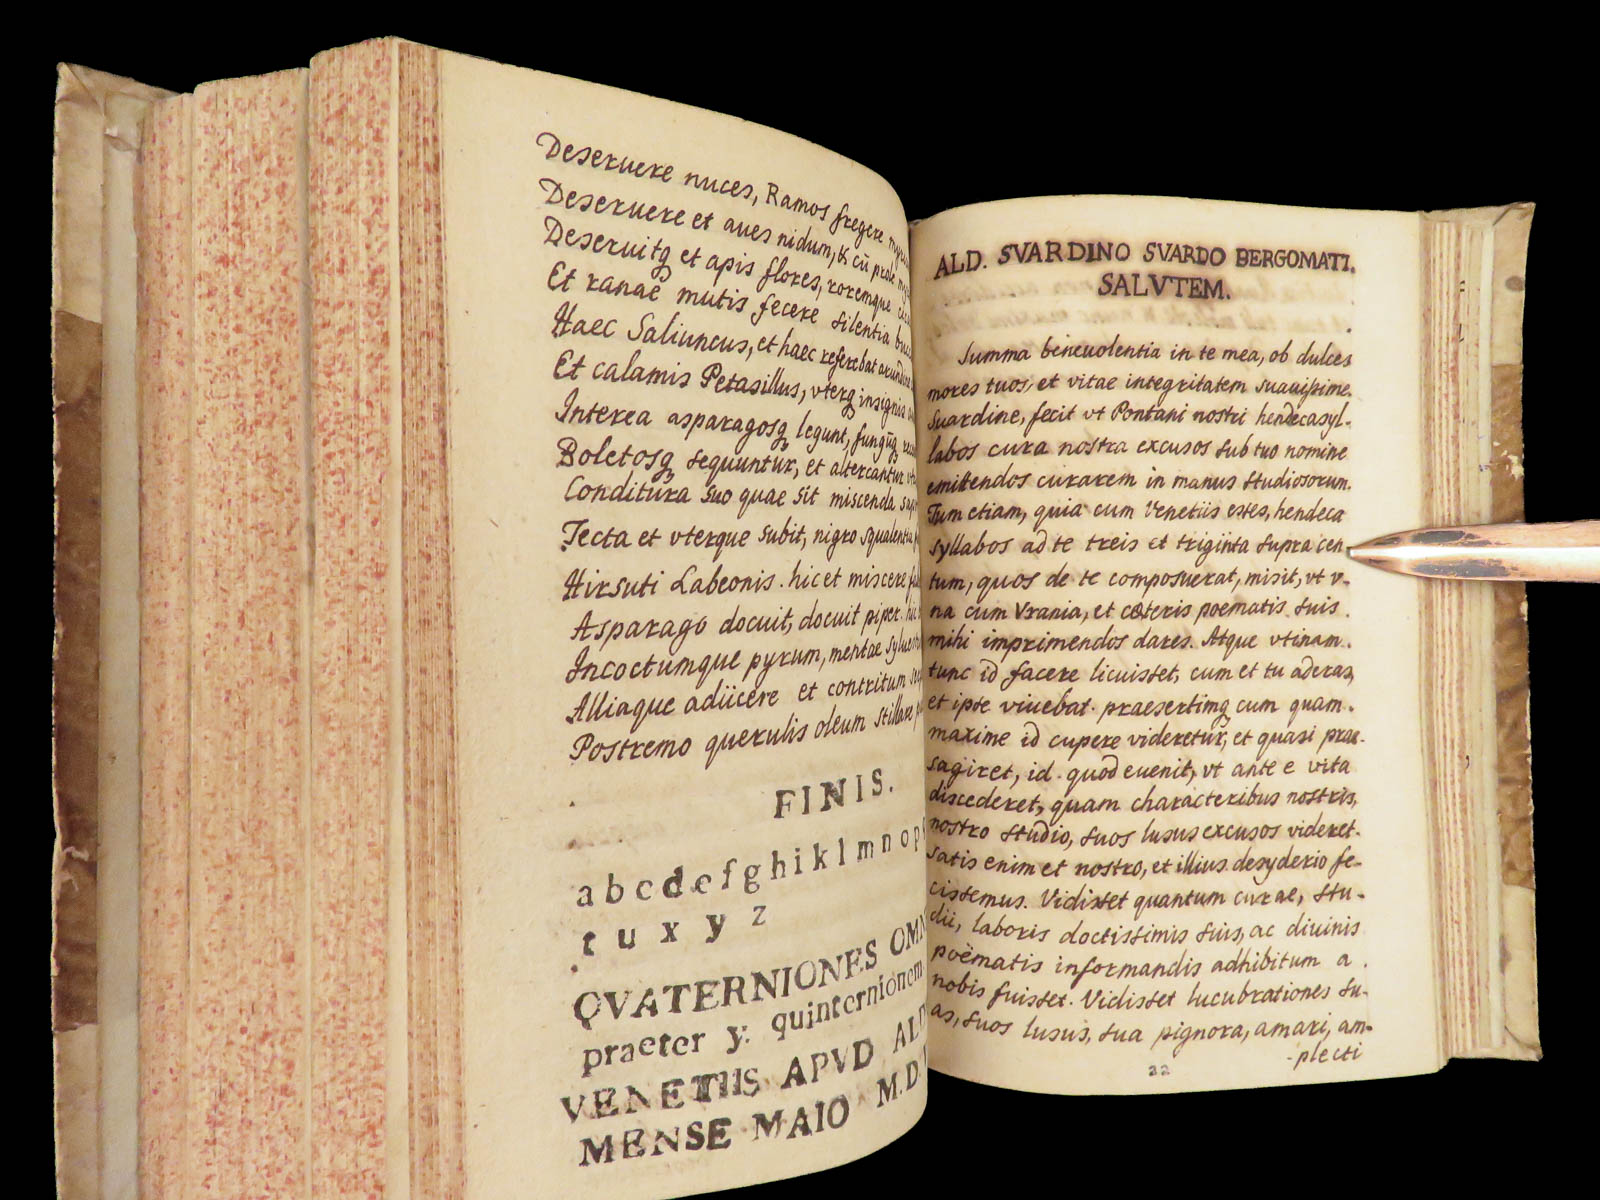 Deseruere nuces, Ramos fregere
Deseruere et aues nidum, & cū prole
Deseruitq; et apis flores, roremque
Et ranae mutis fecere silentia
Haec Saliuncus, et haec referebat
Et calamis Petasillus, vterq; insignis
Interea asparagosq; legunt, fungūq;
Boletosq; sequuntur, et altercantur
Conditura suo quae sit miscenda
Tecta et vterque subit, nigro squalentia
Hirsuti Labeonis. hic et miscere
Asparago docuit, docuit piper.
Incoctumque pyrum, mentae
Alliaque adiicere et contritum
Postremo querulis oleum stillare
FINIS.
a b c d e f g h i k l m n o p
t u x y z
QVATERNIONES
praeter y. quinternionem
VENETIIS APVD
MENSE MAIO M.D
ALD. SVARDINO SVARDO BERGOMATI.
SALVTEM.
Summa beneuolentia in te mea, ob dulces
mores tuos, et vitae integritatem suauissime.
Suardine, fecit vt Pontani nostri hendecasyl-
labos cura nostra excusos sub tuo nomine
emittendos curarem in manus studiosorum.
Tum etiam, quia cum Venetiis esses, hendeca
syllabos ad te treis et triginta supra cen-
tum, quos de te composuerat, misit, vt v-
na cum Vrania, et cæteris poematis suis.
mihi imprimendos dares. Atque vtinam.
tunc id facere licuisset, cum et tu aderas,
et ipse viuebat. praesertimq; cum quam.
maxime id cupere videretur, et quasi prae-
sagiret, id. quod euenit, vt ante e vita
discederet, quam characteribus nostris,
nostro studio, suos lusus excusos videret.
satis enim et nostro, et illius desyderio fe-
cissemus. Vidisset quantum curae, stu-
dii, laboris doctissimis suis, ac diuinis
poëmatis informandis adhibitum a.
nobis fuisset. Vidisset lucubrationes su-
as, suos lusus, sua pignora, amari, am-
-plecti
22